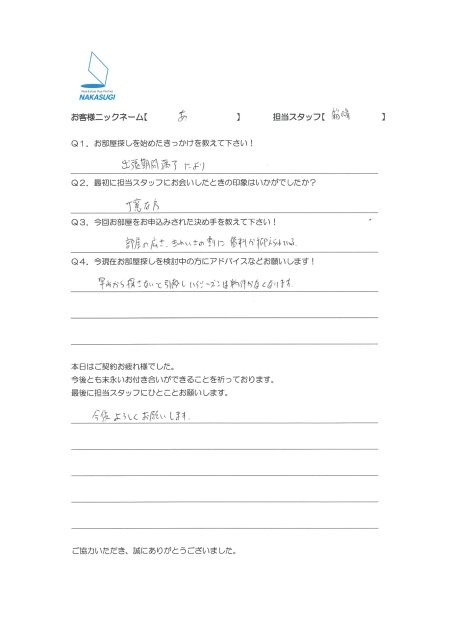 NAKASUGI
お客様ニックネーム【 あ 】 担当スタッフ【 】
Q1．お部屋探しを始めたきっかけを教えて下さい！
出張期間満了により
Q2．最初に担当スタッフにお会いしたときの印象はいかがでしたか？
丁寧な方
Q3．今回お部屋をお申込みされた決め手を教えて下さい！
部屋の広さ、きれいさの割に賃料が抑えられている
Q4．今現在お部屋探しを検討中の方にアドバイスなどお願いします！
早めから探さないと引越しシーズンは物件がなくなります。
本日はご契約お疲れ様でした。
今後とも末永いお付き合いができることを祈っております。
最後に担当スタッフにひとことお願いします。
今後よろしくお願いします。
ご協力いただき、誠にありがとうございました。